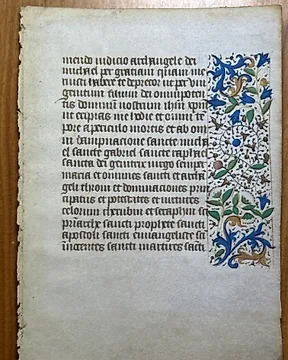 mendo iudicio archangele dei
michael per gratiam quam me
ruisti habere te deprecor ut per uni
genitum suum dei omnipoten
tis dominum nostrum ihesu xpm
ut eripias me hodie et omni te
pore a periculo mortis et ab om
ni dampnacione sancte micha
el sancte gabriel sancte raphael
sancta dei genitrix uirgo semper
maria et omnes sancti et archa
geli throni et dominaciones prin
cipatus et potestates et uirtutes
celorum cherubin et seraphin
priarche sancti prophete sancti
apostoli sancti euuangeliste
sancti martires sancti